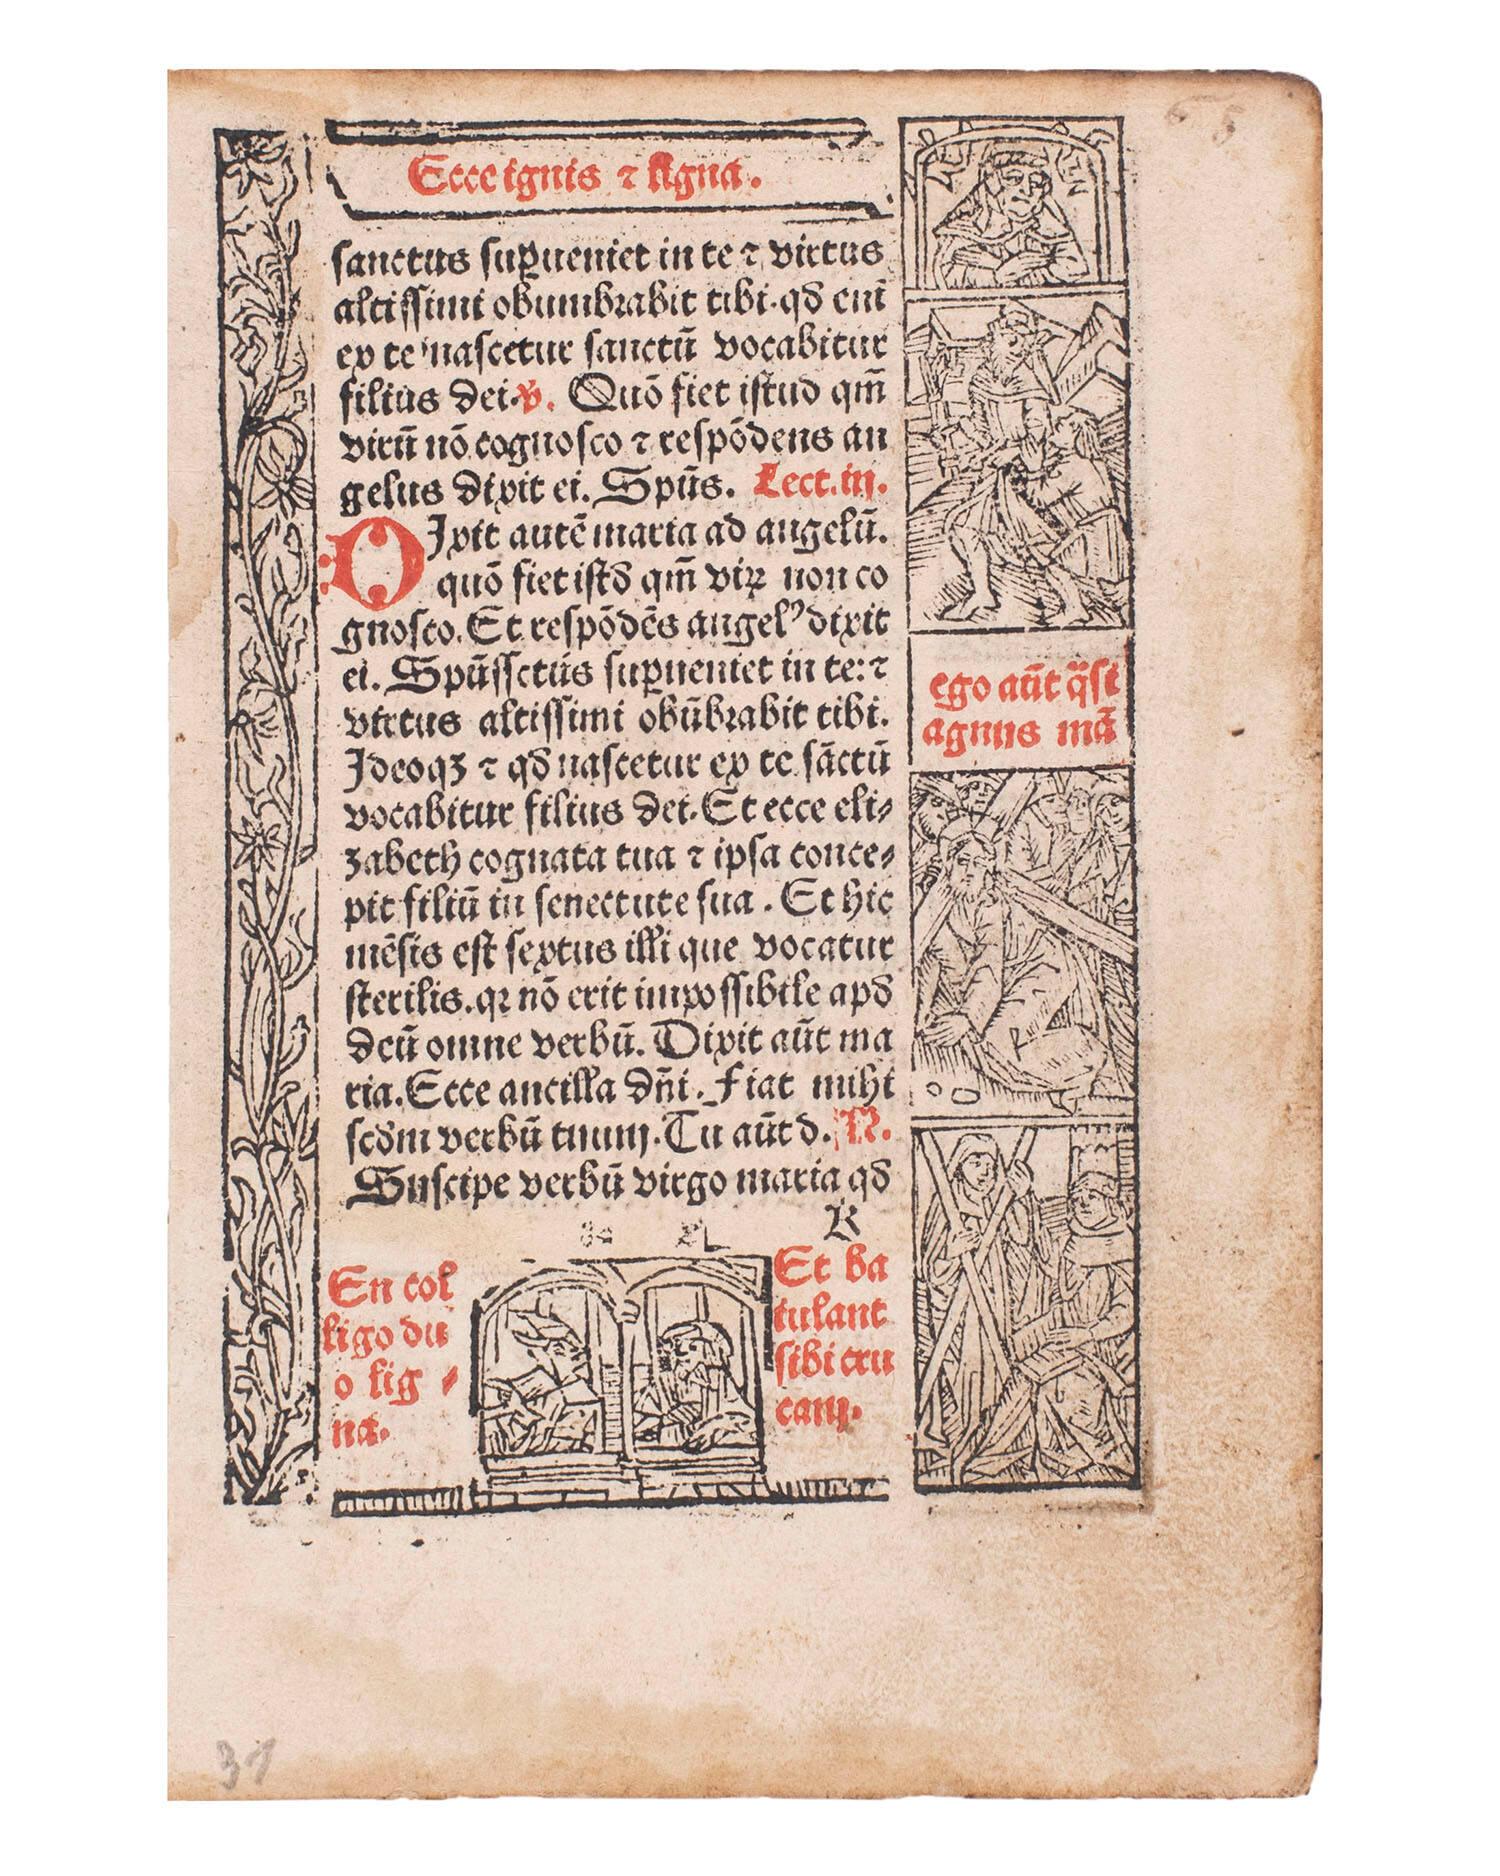 Ecce ignis ⁊ ligna.
sanctus suꝑueniet in te ⁊ virtus
altissimi obumbrabit tibi. qđ eni
ex te nascetur sanctū vocabitur
filius dei. ℣. Quō fiet istud qm̄
virū nō cognosco ⁊ respōdens an
gelus dixit ei. Spūs. Lect. iij.
DIxit autē maria ad angelū.
quō fiet istđ qm̄ viꝝ non co
gnosco. Et respōdēs angelꝰ dixit
ei. Spūssctūs suꝑueniet in te: ⁊
virtus altissimi obūbrabit tibi.
Ideoqꝫ ⁊ qđ nascetur ex te sāctū
vocabitur filius dei. Et ecce eli⸗
zabeth cognata tua ⁊ ipsa conce⸗
pit filiū in senectute sua. Et hic
mēsis est sextus illi que vocatur
sterilis. qꝛ nō erit impossibile apđ
deū omne verbū. Dixit aūt ma
ria. Ecce ancilla dn̄i. Fiat mihi
scđm verbū tuum. Tu aūt d. ℟.
Suscipe verbū virgo maria qđ
K
ego aūt q̈si
agnus mā
En col
ligo du
o lig⸗
na.
Et ba
iulant
sibi cru
cem.
65
31